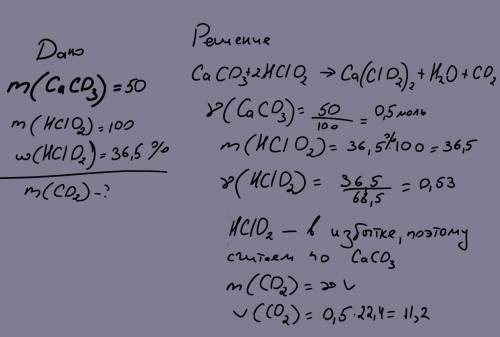 Дано
m(CaCO3)=50
m(HClO2)=100
w(HClO2)=36,5%
m(CO2)-?
Решение
CaCO3+2HClO2 → Ca(ClO2)2+H2O+CO2
γ(CaCO3)= 50/100 = 0,5 моль
m(HClO2)= 36,5%*100=36,5
γ(HClO2)= 36,5/68,5 = 0,53
HClO2 – в избытке, поэтому
считаем по CaCO3
m(CO2)=
V(CO2)= 0,5·22,4=11,2